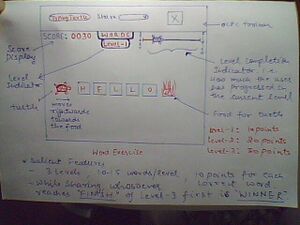 Typing Turtle
Share
X
OLPC Toolbar
SCORE: 0030
WORDS
LEVEL-1
Score
Display
Level
Indicator
Level Completion
Indicator i.e.
how much the user
has progressed in
the current level
turtle
H E L L O
Food for turtle
moves
rightwards
towards
the food
Level-1: 10 points
Level-2: 20 points
Level-3: 30 points
Word Exercise
* Salient Features
- 3 Levels, 10-15 words/level, 10 points for each
correct word
- While sharing, whosoever
reaches "FINISH" of Level-3 first is "WINNER"